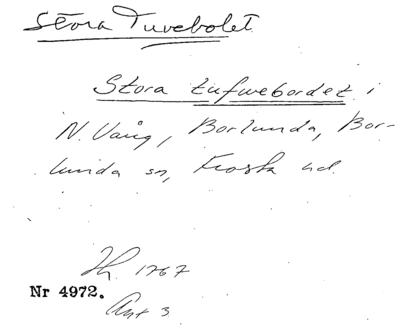 Stora Tuvebolet
Stora tufwebordet i
N. Vång, Borlunda, Bor-
lunda sn, Frosta hd.
Lh. 1767
Nr 4972.
Akt 3